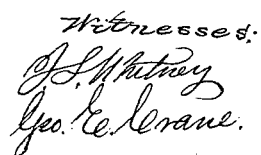 Witnesses:
J. S. Whitney
Geo. E. Crane.